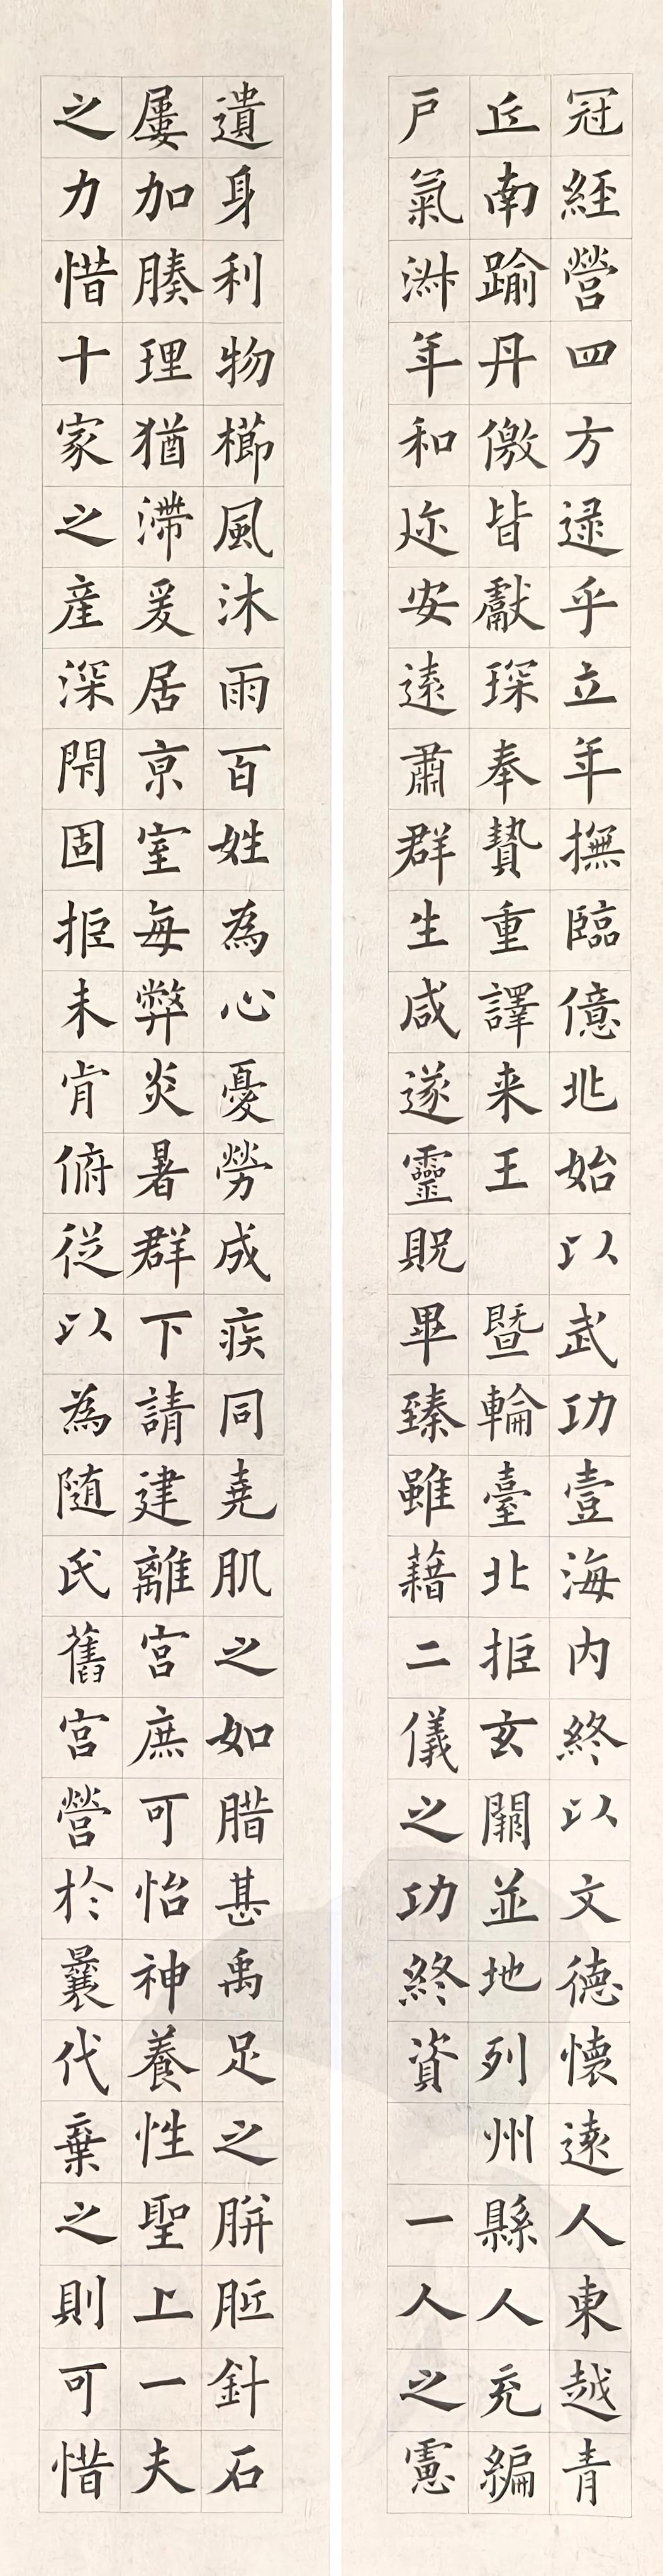 冠經營四方逯乎立年撫臨億兆始以武功壹海内終以文德懷遠人東越青
丘南踰丹儌皆獻琛奉贄重譯来王 暨輪臺北拒玄闕並地列州縣人充編
戸氣淋年和迩安遠肅群生咸遂靈貺畢臻雖藉二儀之功終資 一人之慮
遺身利物櫛風沐雨百姓為心憂勞成疾同堯肌之如腊甚禹足之胼胝針石
屢加腠理猶滯爰居京室每弊炎暑群下請建離宮庶可怡神養性聖上一夫
之力惜十家之産深閇固拒未肯俯従以為随氏舊宮營於曩代棄之則可惜